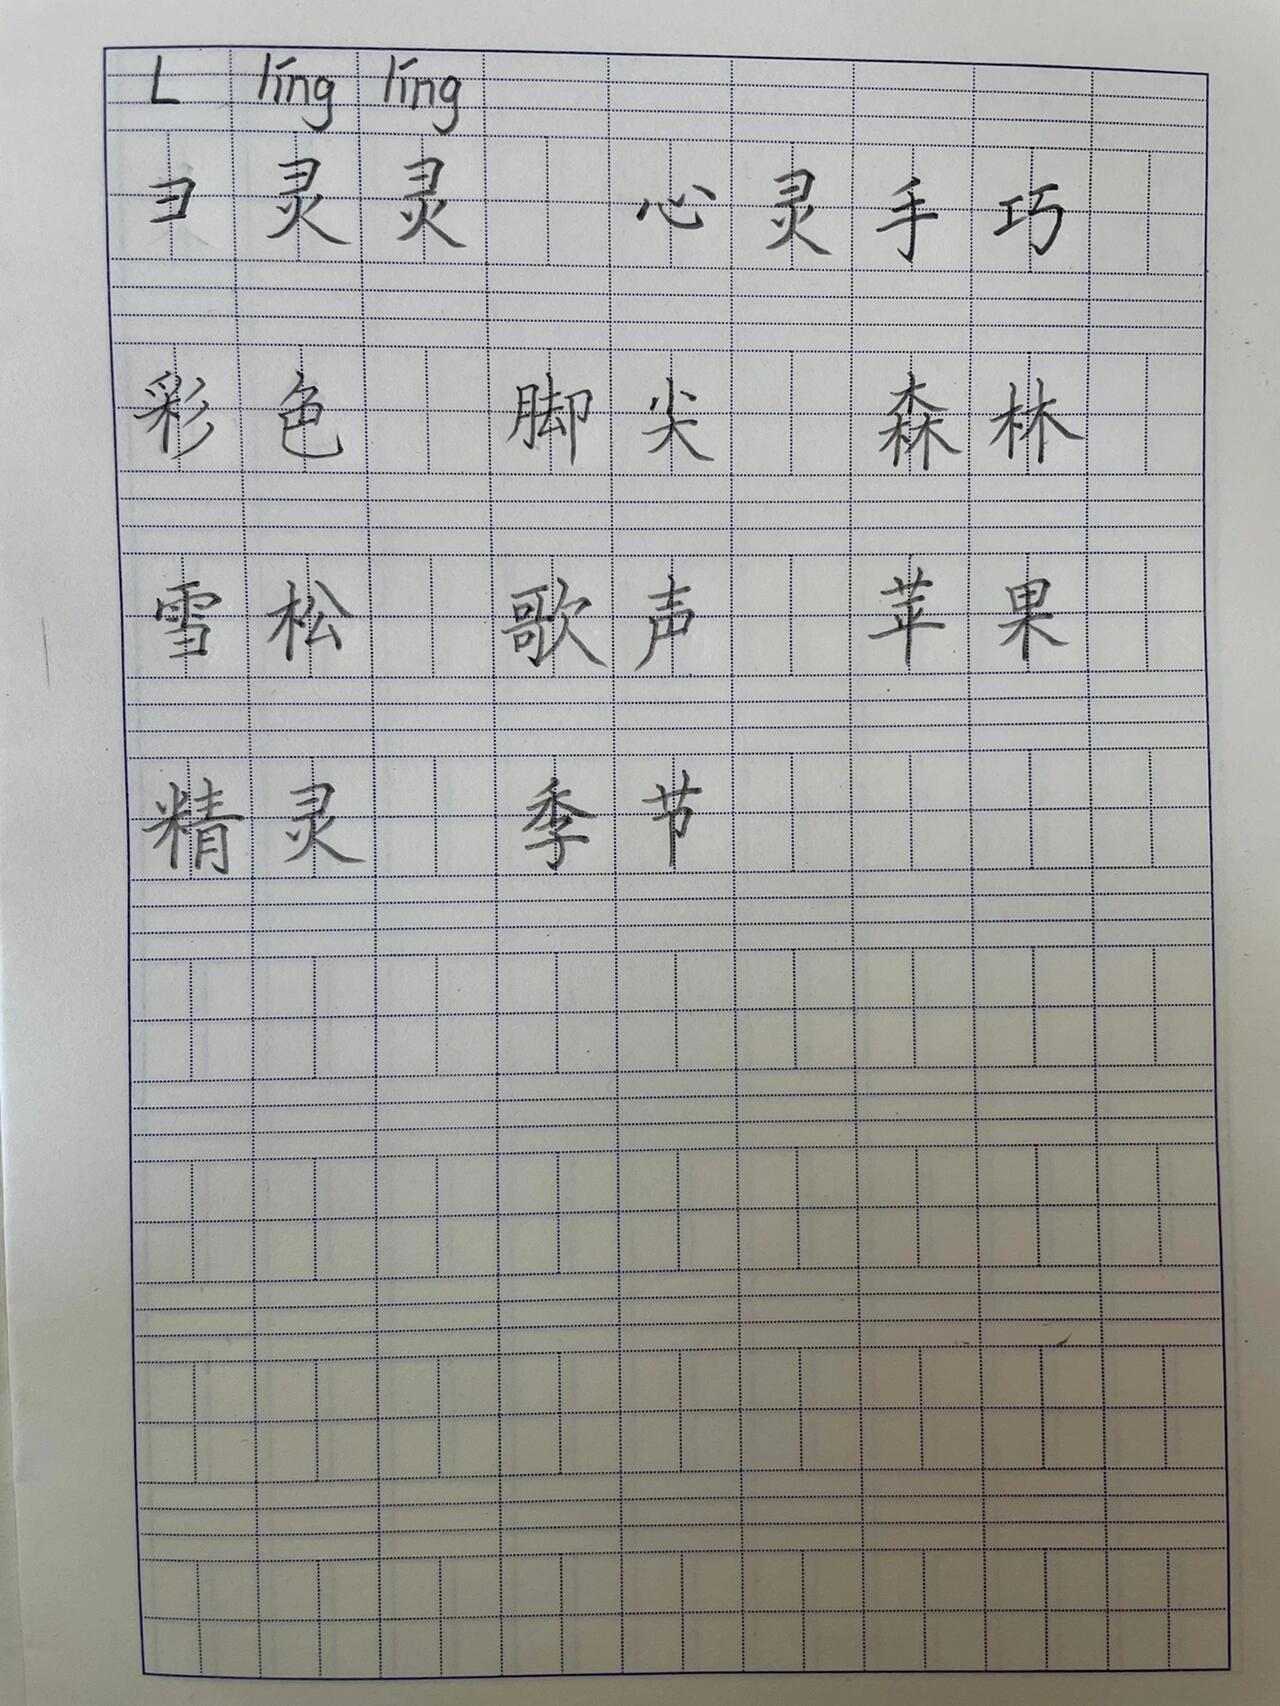 L líng líng
彐 灵 灵 心灵手巧
彩色 脚尖 森林
雪松 歌声 苹果
精灵 季节